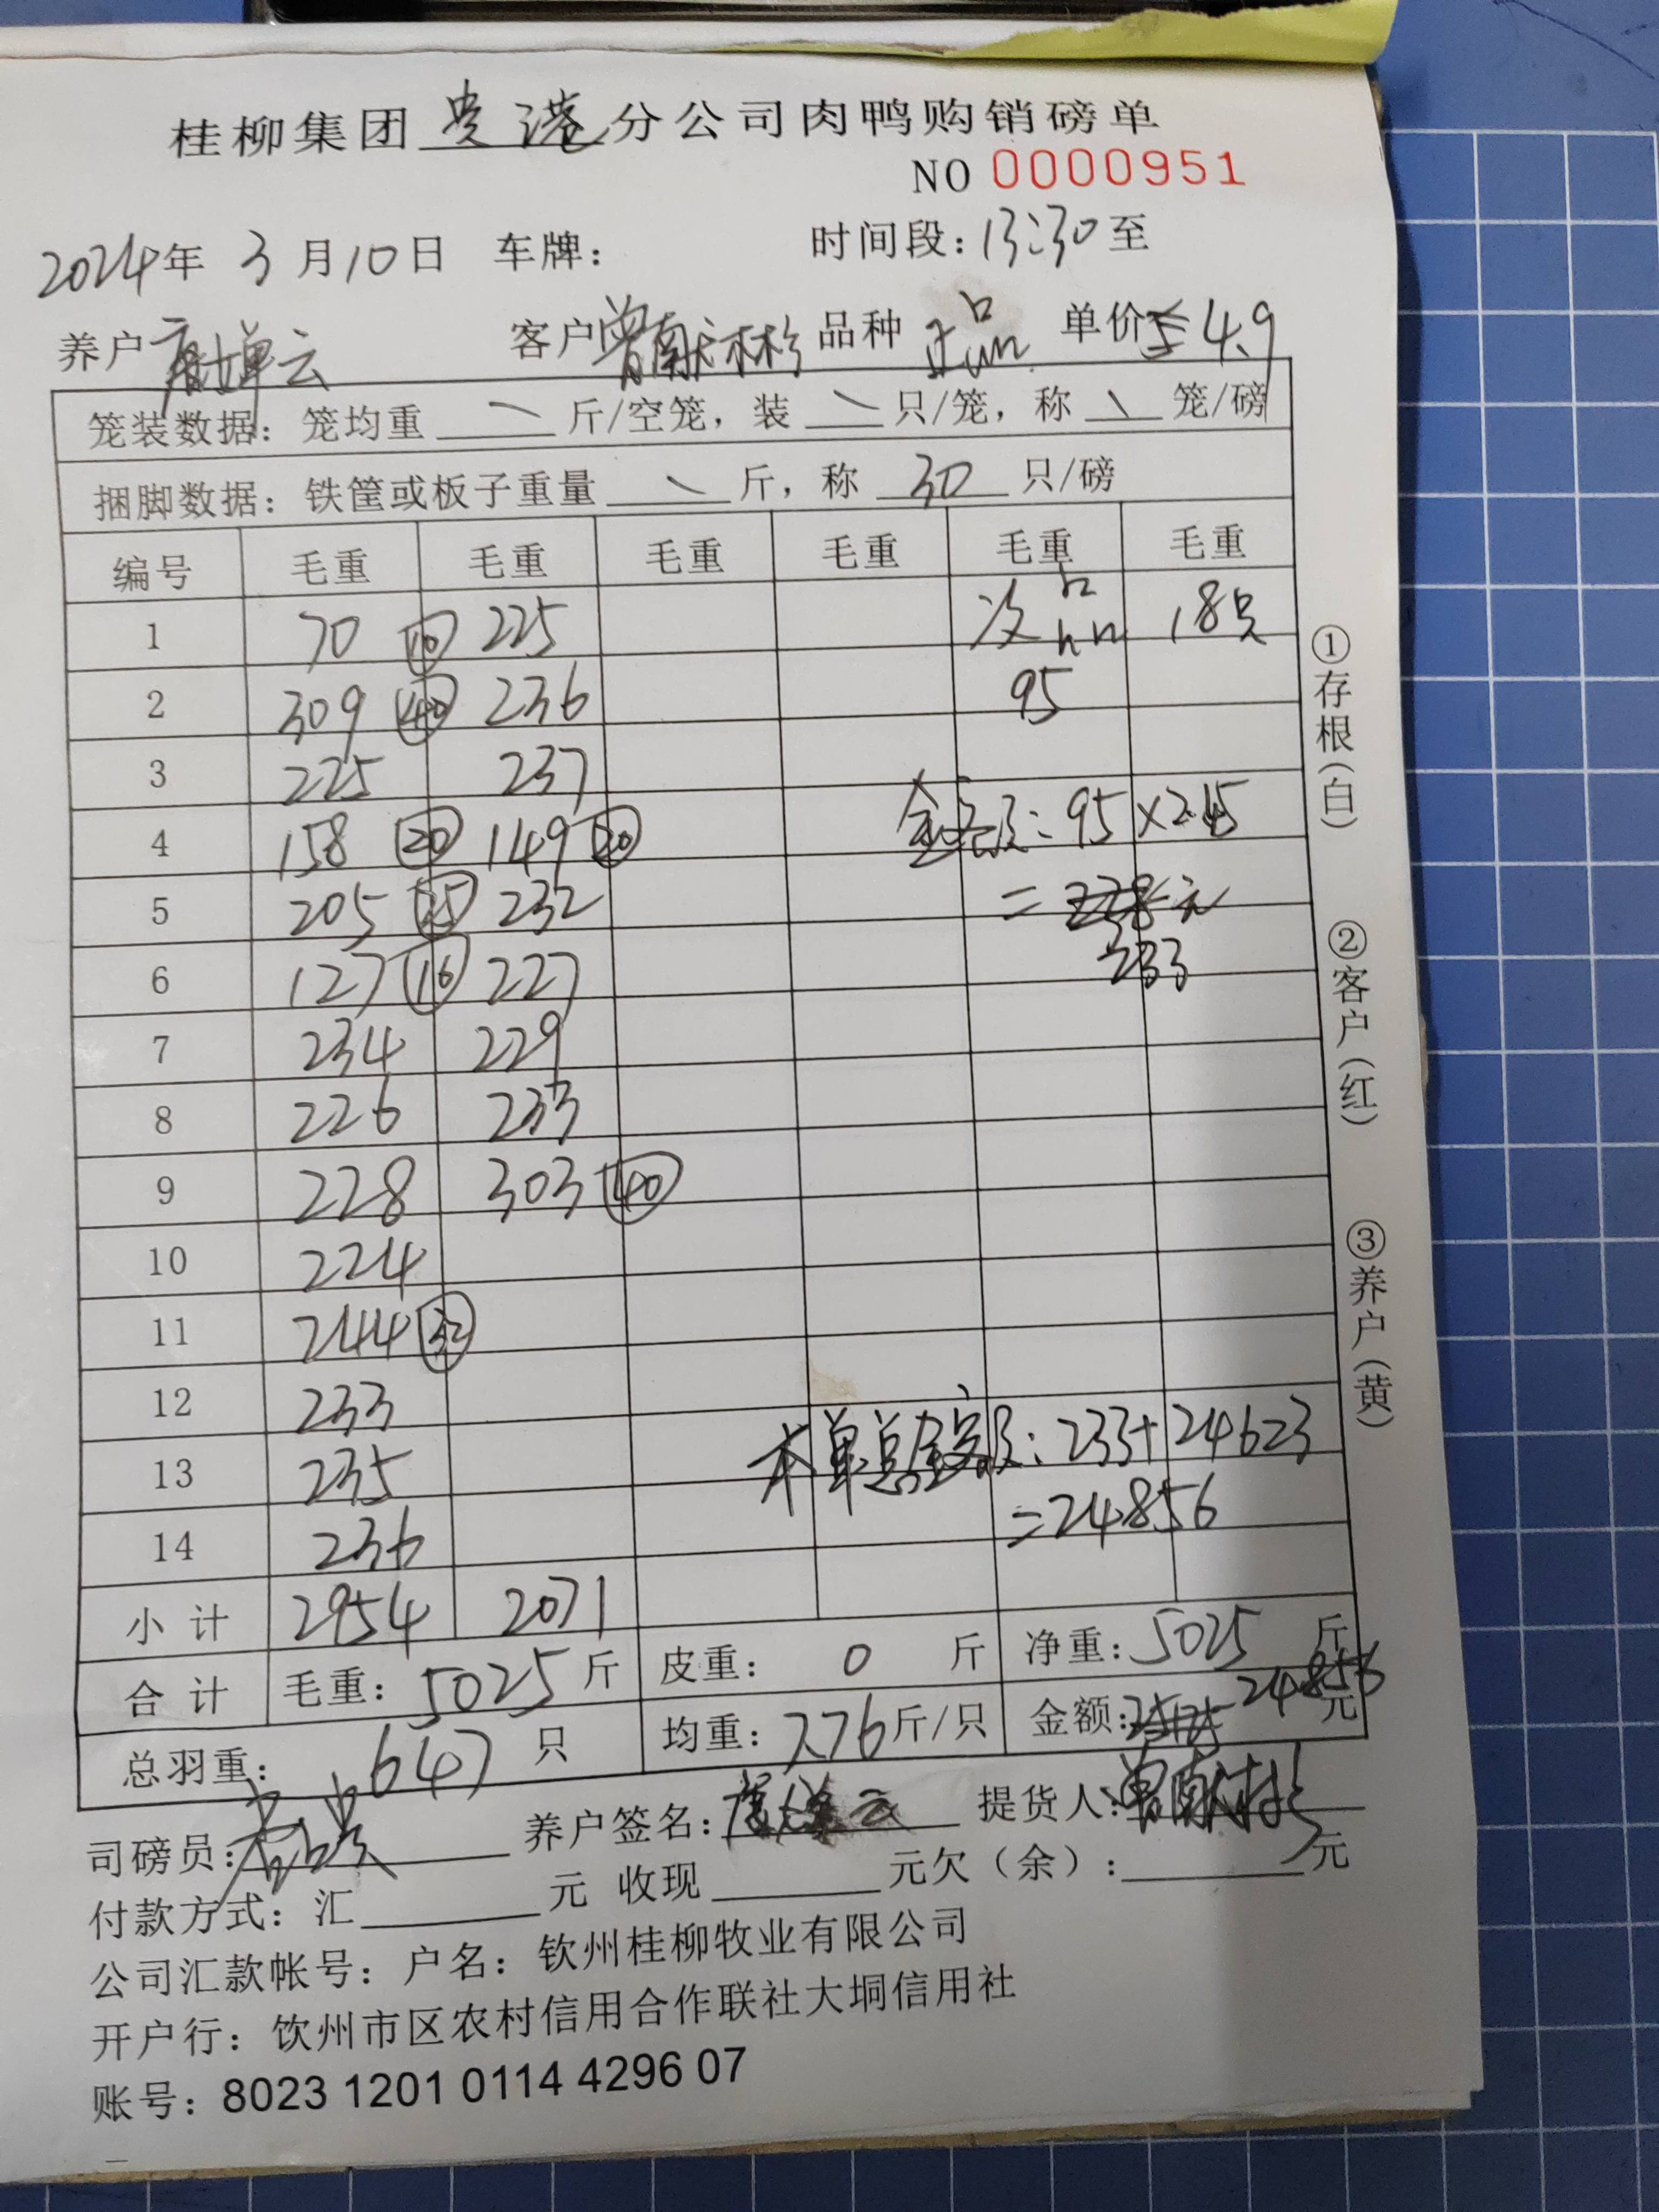 桂柳集团贵港分公司肉鸭购销磅单
NO 0000951
2024年3月10日 车牌： 时间段：13:30至
养户 客户曾献彬 品种 正品 单价 4.9
笼装数据：笼均重 \ 斤/空笼，装 \ 只/笼，称 \ 笼/磅
捆脚数据：铁筐或板子重量 \ 斤，称 30 只/磅
编号 毛重 毛重 毛重 毛重 毛重 毛重
1 70 ⑩ 225 次品 18只
2 309 ㊵ 236 95
3 225 237
4 158 ⑳ 149 ⑳ 金额：95×2.45
5 205 ㉕ 232 = 238元
6 127 ⑯ 227 233
7 234 229
8 226 233
9 228 303 ㊵
10 224
11 244 ㉜
12 233
13 235 本单总金额：233+24623
14 236 =24856
小计 2954 2071
合计 毛重：5025斤 皮重：0斤 净重：5025斤
总羽重：647只 均重：7.76斤/只 金额： 24856元
司磅员： 养户签名： 提货人：曾献彬
付款方式：汇 元 收现 元欠（余）： 元
公司汇款帐号：户名：钦州桂柳牧业有限公司
开户行：饮州市区农村信用合作联社大垌信用社
账号：8023 1201 0114 4296 07
①存根（白）
②客户（红）
③养户（黄）